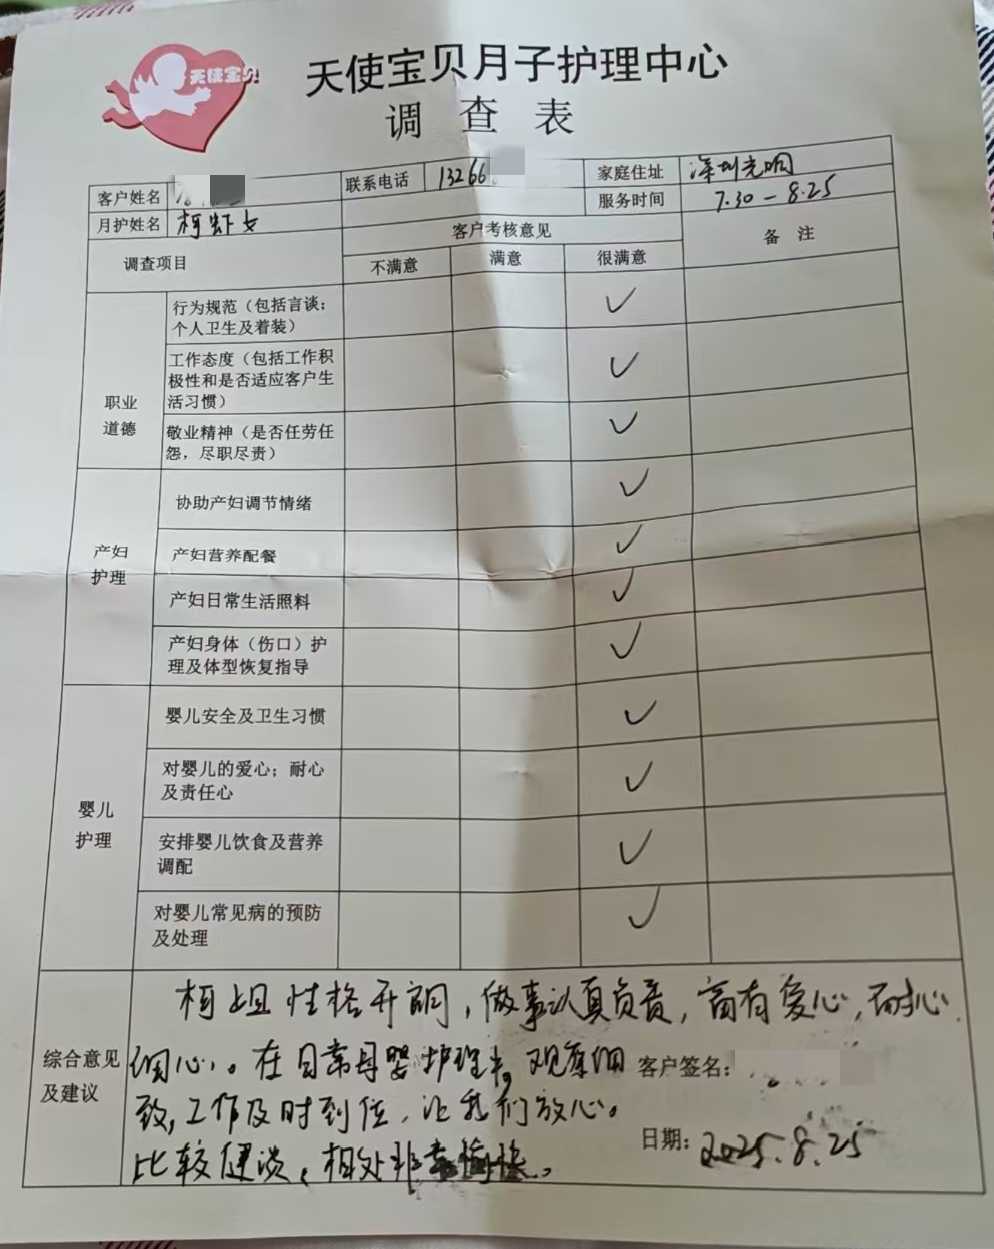 天使宝贝
天使宝贝月子护理中心
调查表
客户姓名 联系电话 13266 家庭住址 深圳光明
月护姓名 柯虾女 服务时间 7.30-8.25
调查项目 客户考核意见 备注
不满意 满意 很满意
职业道德
行为规范（包括言谈；
个人卫生及着装） ✓
工作态度（包括工作积
极性和是否适应客户生
活习惯） ✓
敬业精神（是否任劳任
怨，尽职尽责） ✓
产妇护理
协助产妇调节情绪 ✓
产妇营养配餐 ✓
产妇日常生活照料 ✓
产妇身体（伤口）护
理及体型恢复指导 ✓
婴儿护理
婴儿安全及卫生习惯 ✓
对婴儿的爱心；耐心
及责任心 ✓
安排婴儿饮食及营养
调配 ✓
对婴儿常见病的预防
及处理 ✓
综合意见
及建议
柯姐性格开朗，做事认真负责，富有爱心，耐心
细心。在日常母婴护理中，观察细
致，工作及时到位，让我们放心。
比较健谈，相处非常愉快。
客户签名：
日期：2025.8.25